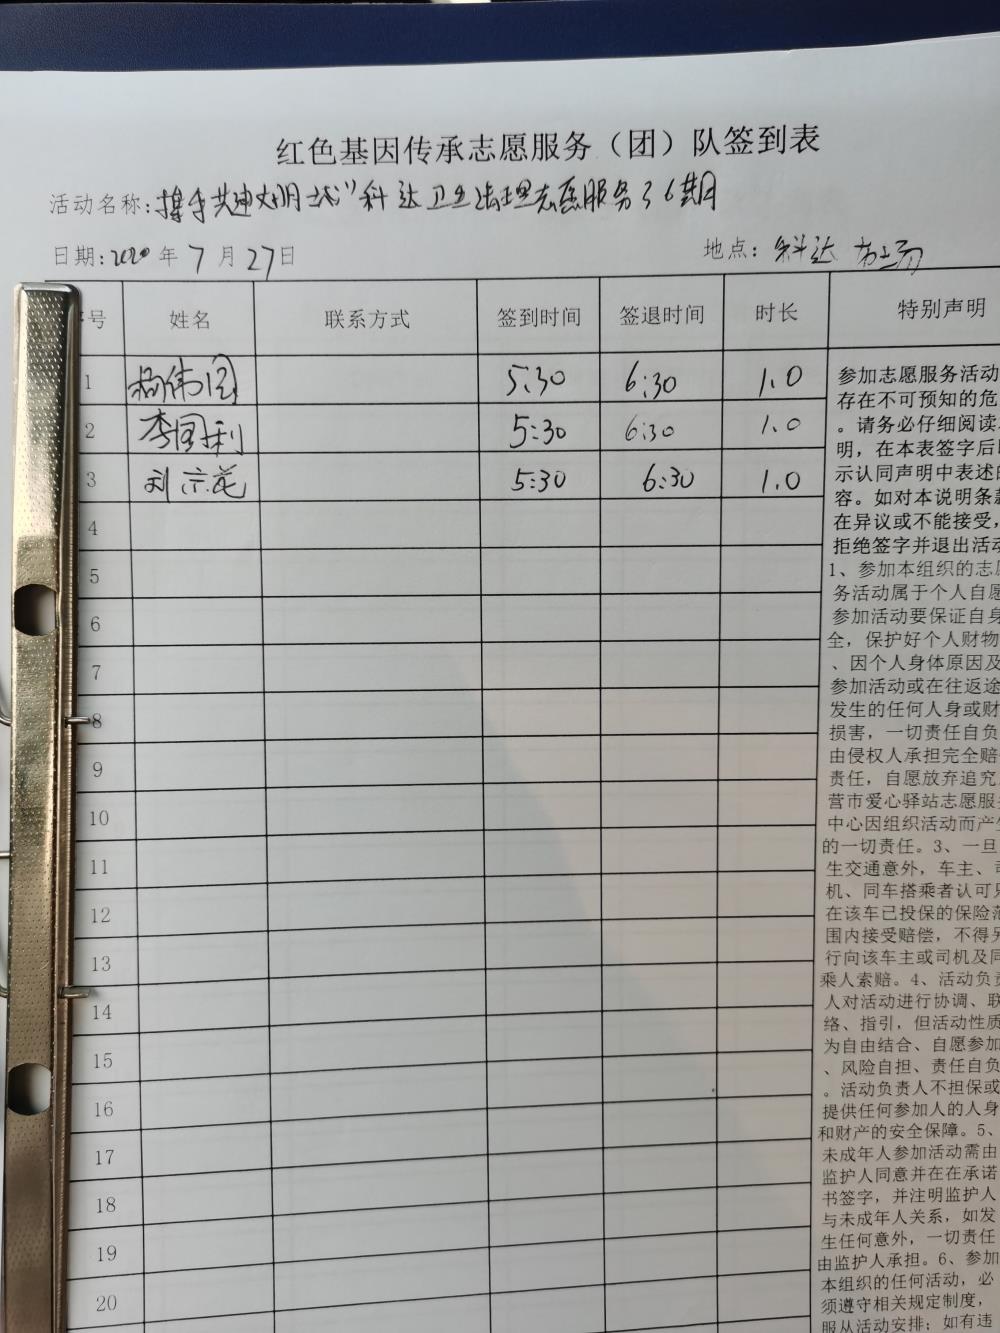 红色基因传承志愿服务（团）队签到表
活动名称:携手共建文明城"科达卫生清理志愿服务36期
日期:2020年7月27日 地点:科达
号 姓名 联系方式 签到时间 签退时间 时长 特别声明
1 5:30 6:30 1.0
2 李国利 5:30 6:30 1.0
3 刘 5:30 6:30 1.0
4
5
6
7
8
9
10
11
12
13
14
15
16
17
18
19
20
参加志愿服务活动
存在不可预知的危
。请务必仔细阅读
明，在本表签字后
示认同声明中表述的
容。如对本说明条款
在异议或不能接受，
拒绝签字并退出活动
1、参加本组织的志愿
务活动属于个人自愿
参加活动要保证自身
全，保护好个人财物
、因个人身体原因及
参加活动或在往返途
发生的任何人身或财
损害，一切责任自负
由侵权人承担完全赔
责任，自愿放弃追究
营市爱心驿站志愿服务
中心因组织活动而产生
的一切责任。3、一旦
生交通意外，车主、司
机、同车搭乘者认可只
在该车已投保的保险范
围内接受赔偿，不得另
行向该车主或司机及同
乘人索赔。4、活动负责
人对活动进行协调、联
络、指引，但活动性质
为自由结合、自愿参加
、风险自担、责任自负
。活动负责人不担保或
提供任何参加人的人身
和财产的安全保障。5、
未成年人参加活动需由
监护人同意并在在承诺
书签字，并注明监护人
与未成年人关系，如发
生任何意外，一切责任
由监护人承担。6、参加
本组织的任何活动，必
须遵守相关规定制度，
服从活动安排；如有违